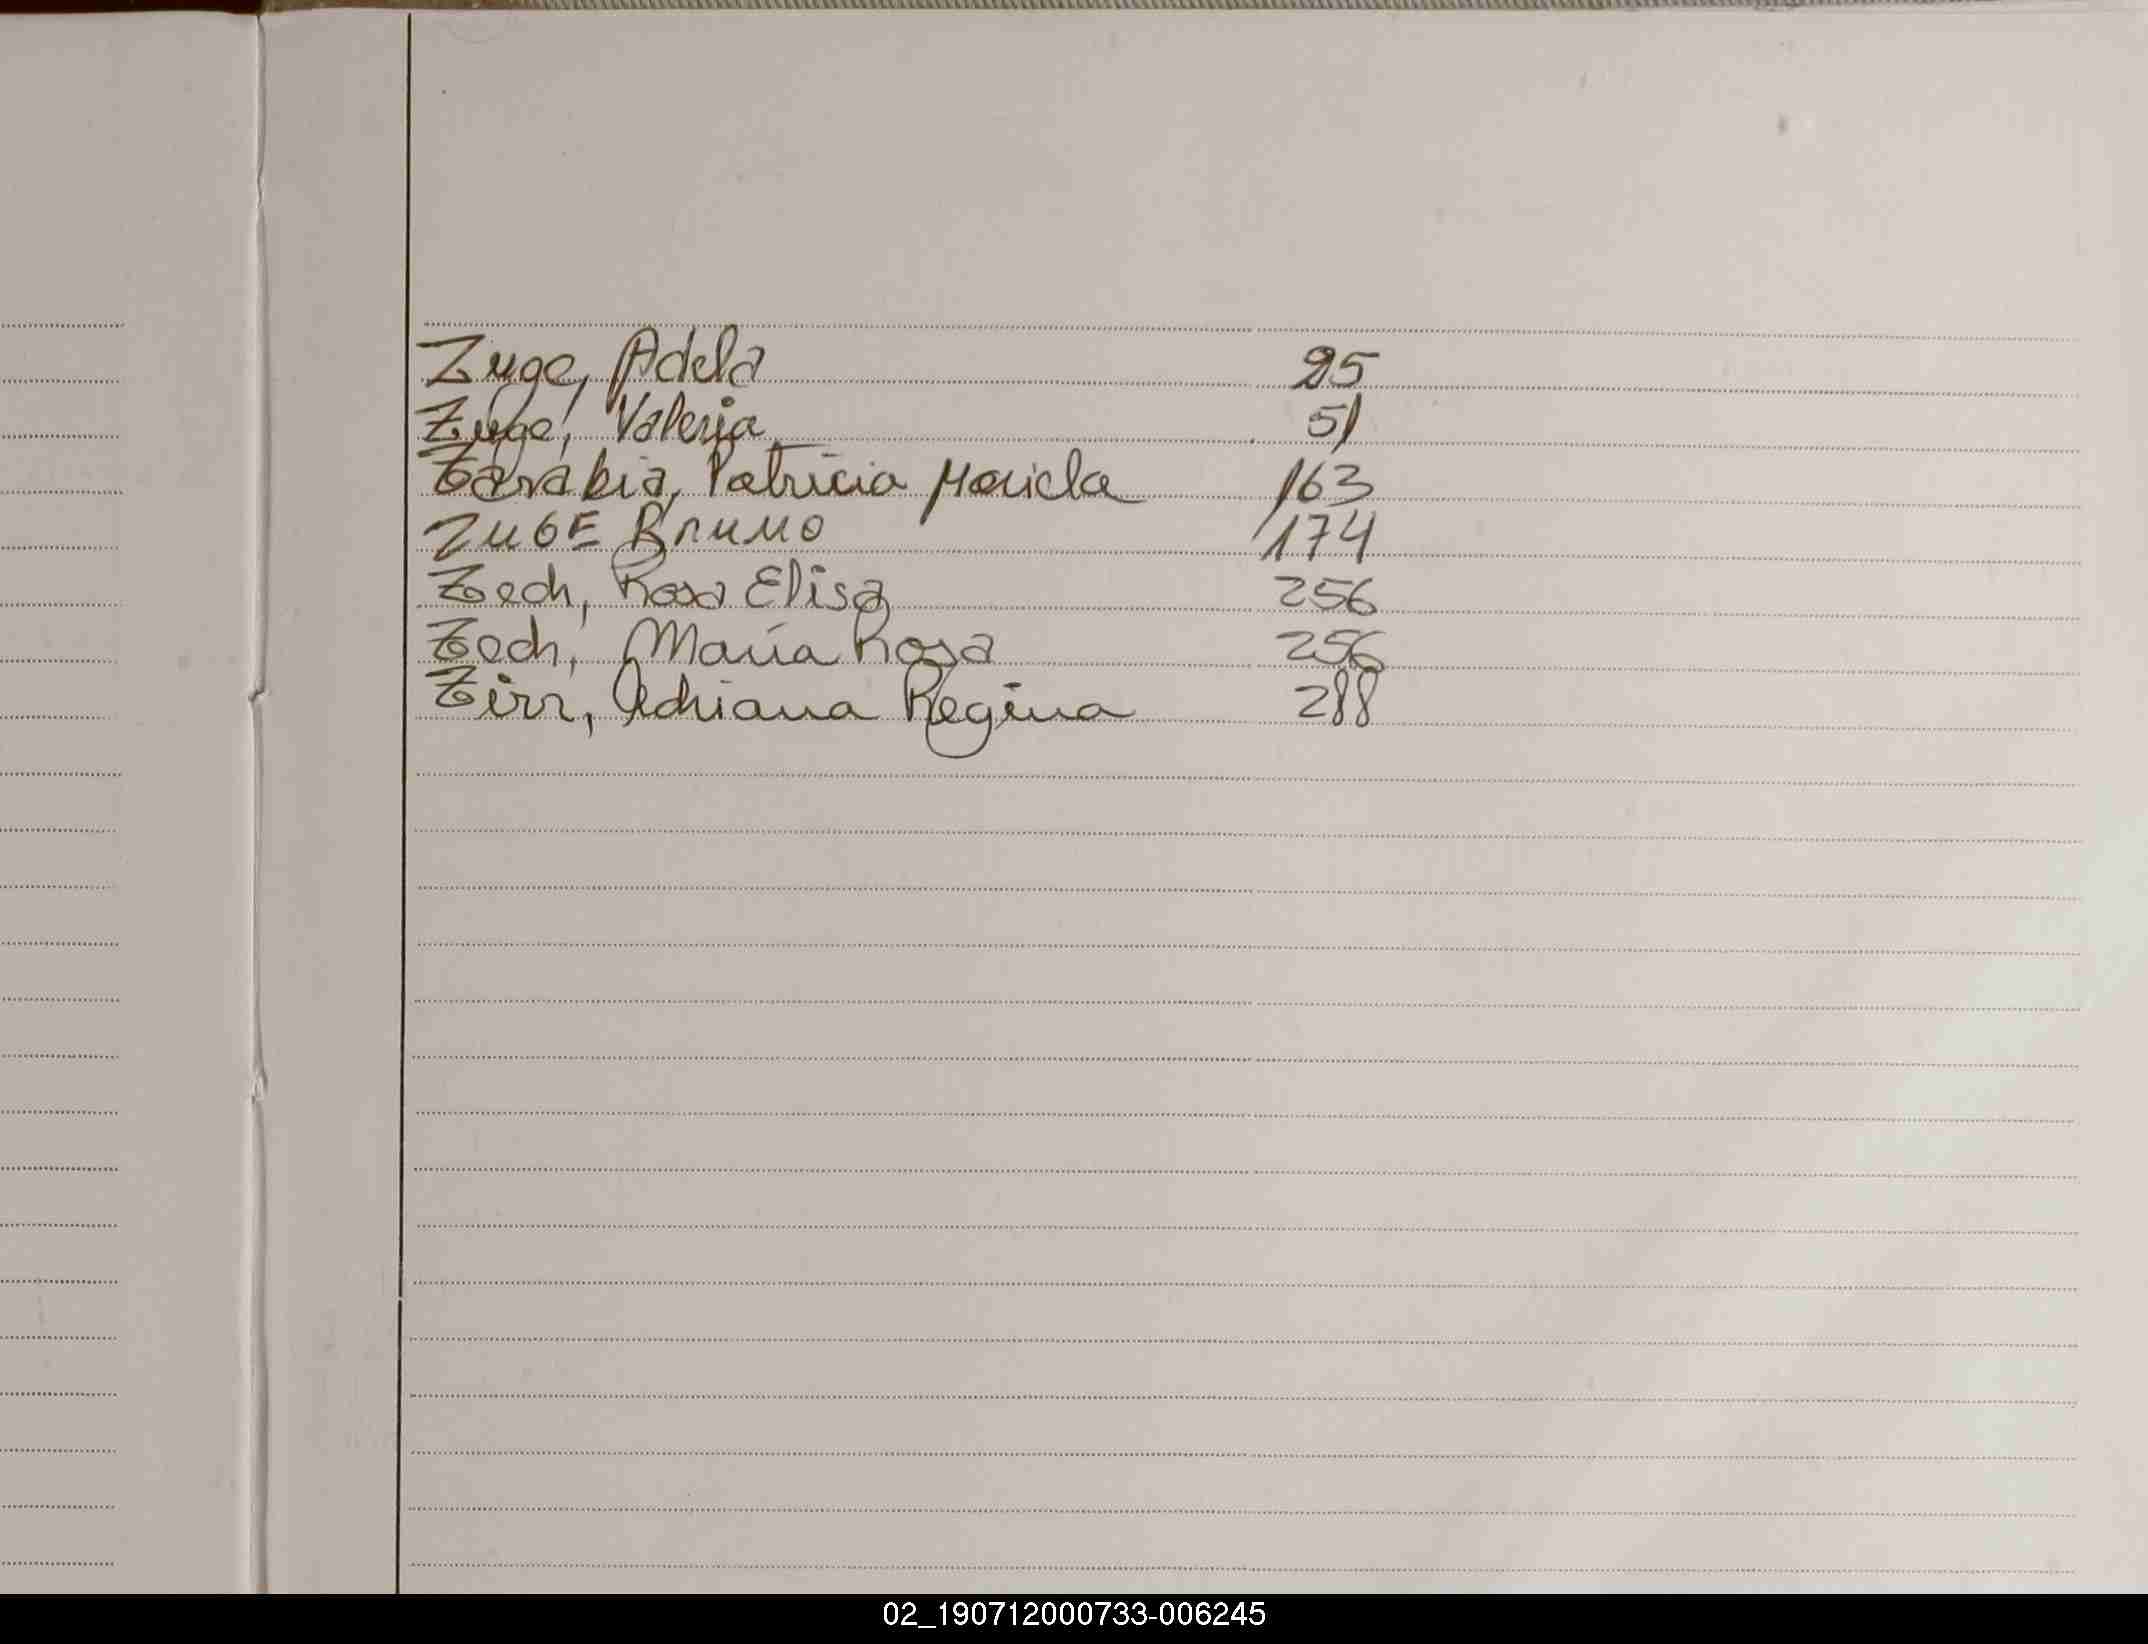 Zuge, Adela 25
Zuge, Valeria 51
Zarabia, Patricia Mariela 163
ZUGE BRUNO 174
Zech, Rosa Elisa 256
Zech, María Rosa 256
Zirr, Adriana Regina 288
02_190712000733-006245